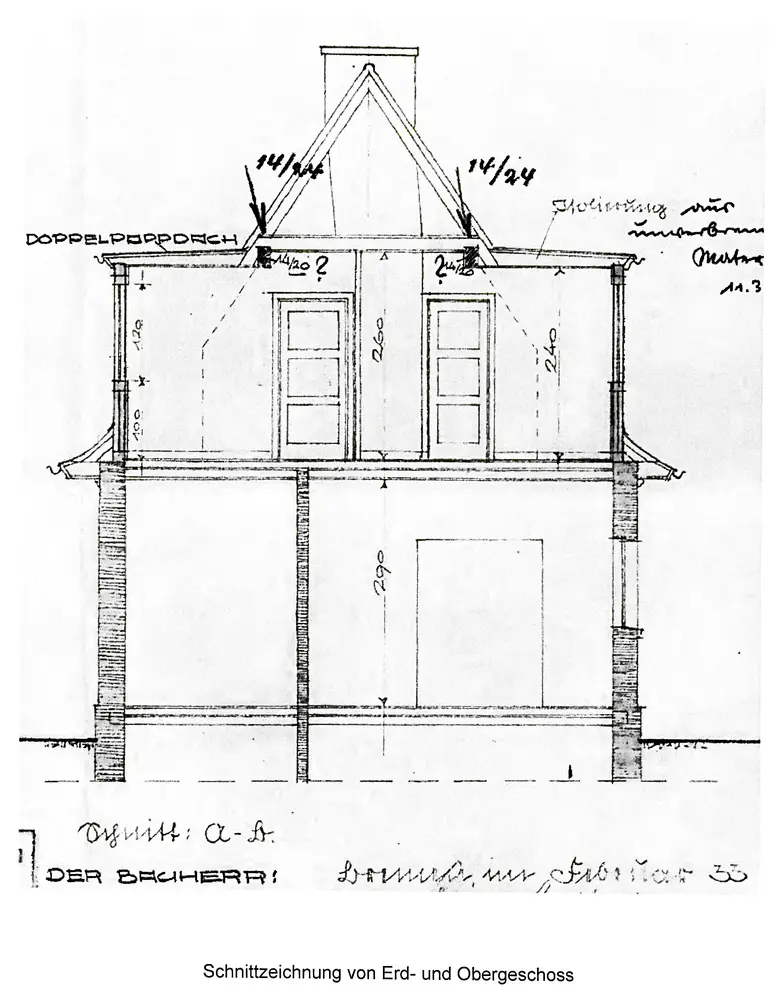 14/24
14/24
Isolierung aus
unverbrenn
Mater
11.3
DOPPELPAPPDACH
14/20 ?
? 14/20
120
260
240
100
290
Schnitt: A-B.
DER BAUHERR:
im Februar 33
Schnittzeichnung von Erd- und Obergeschoss